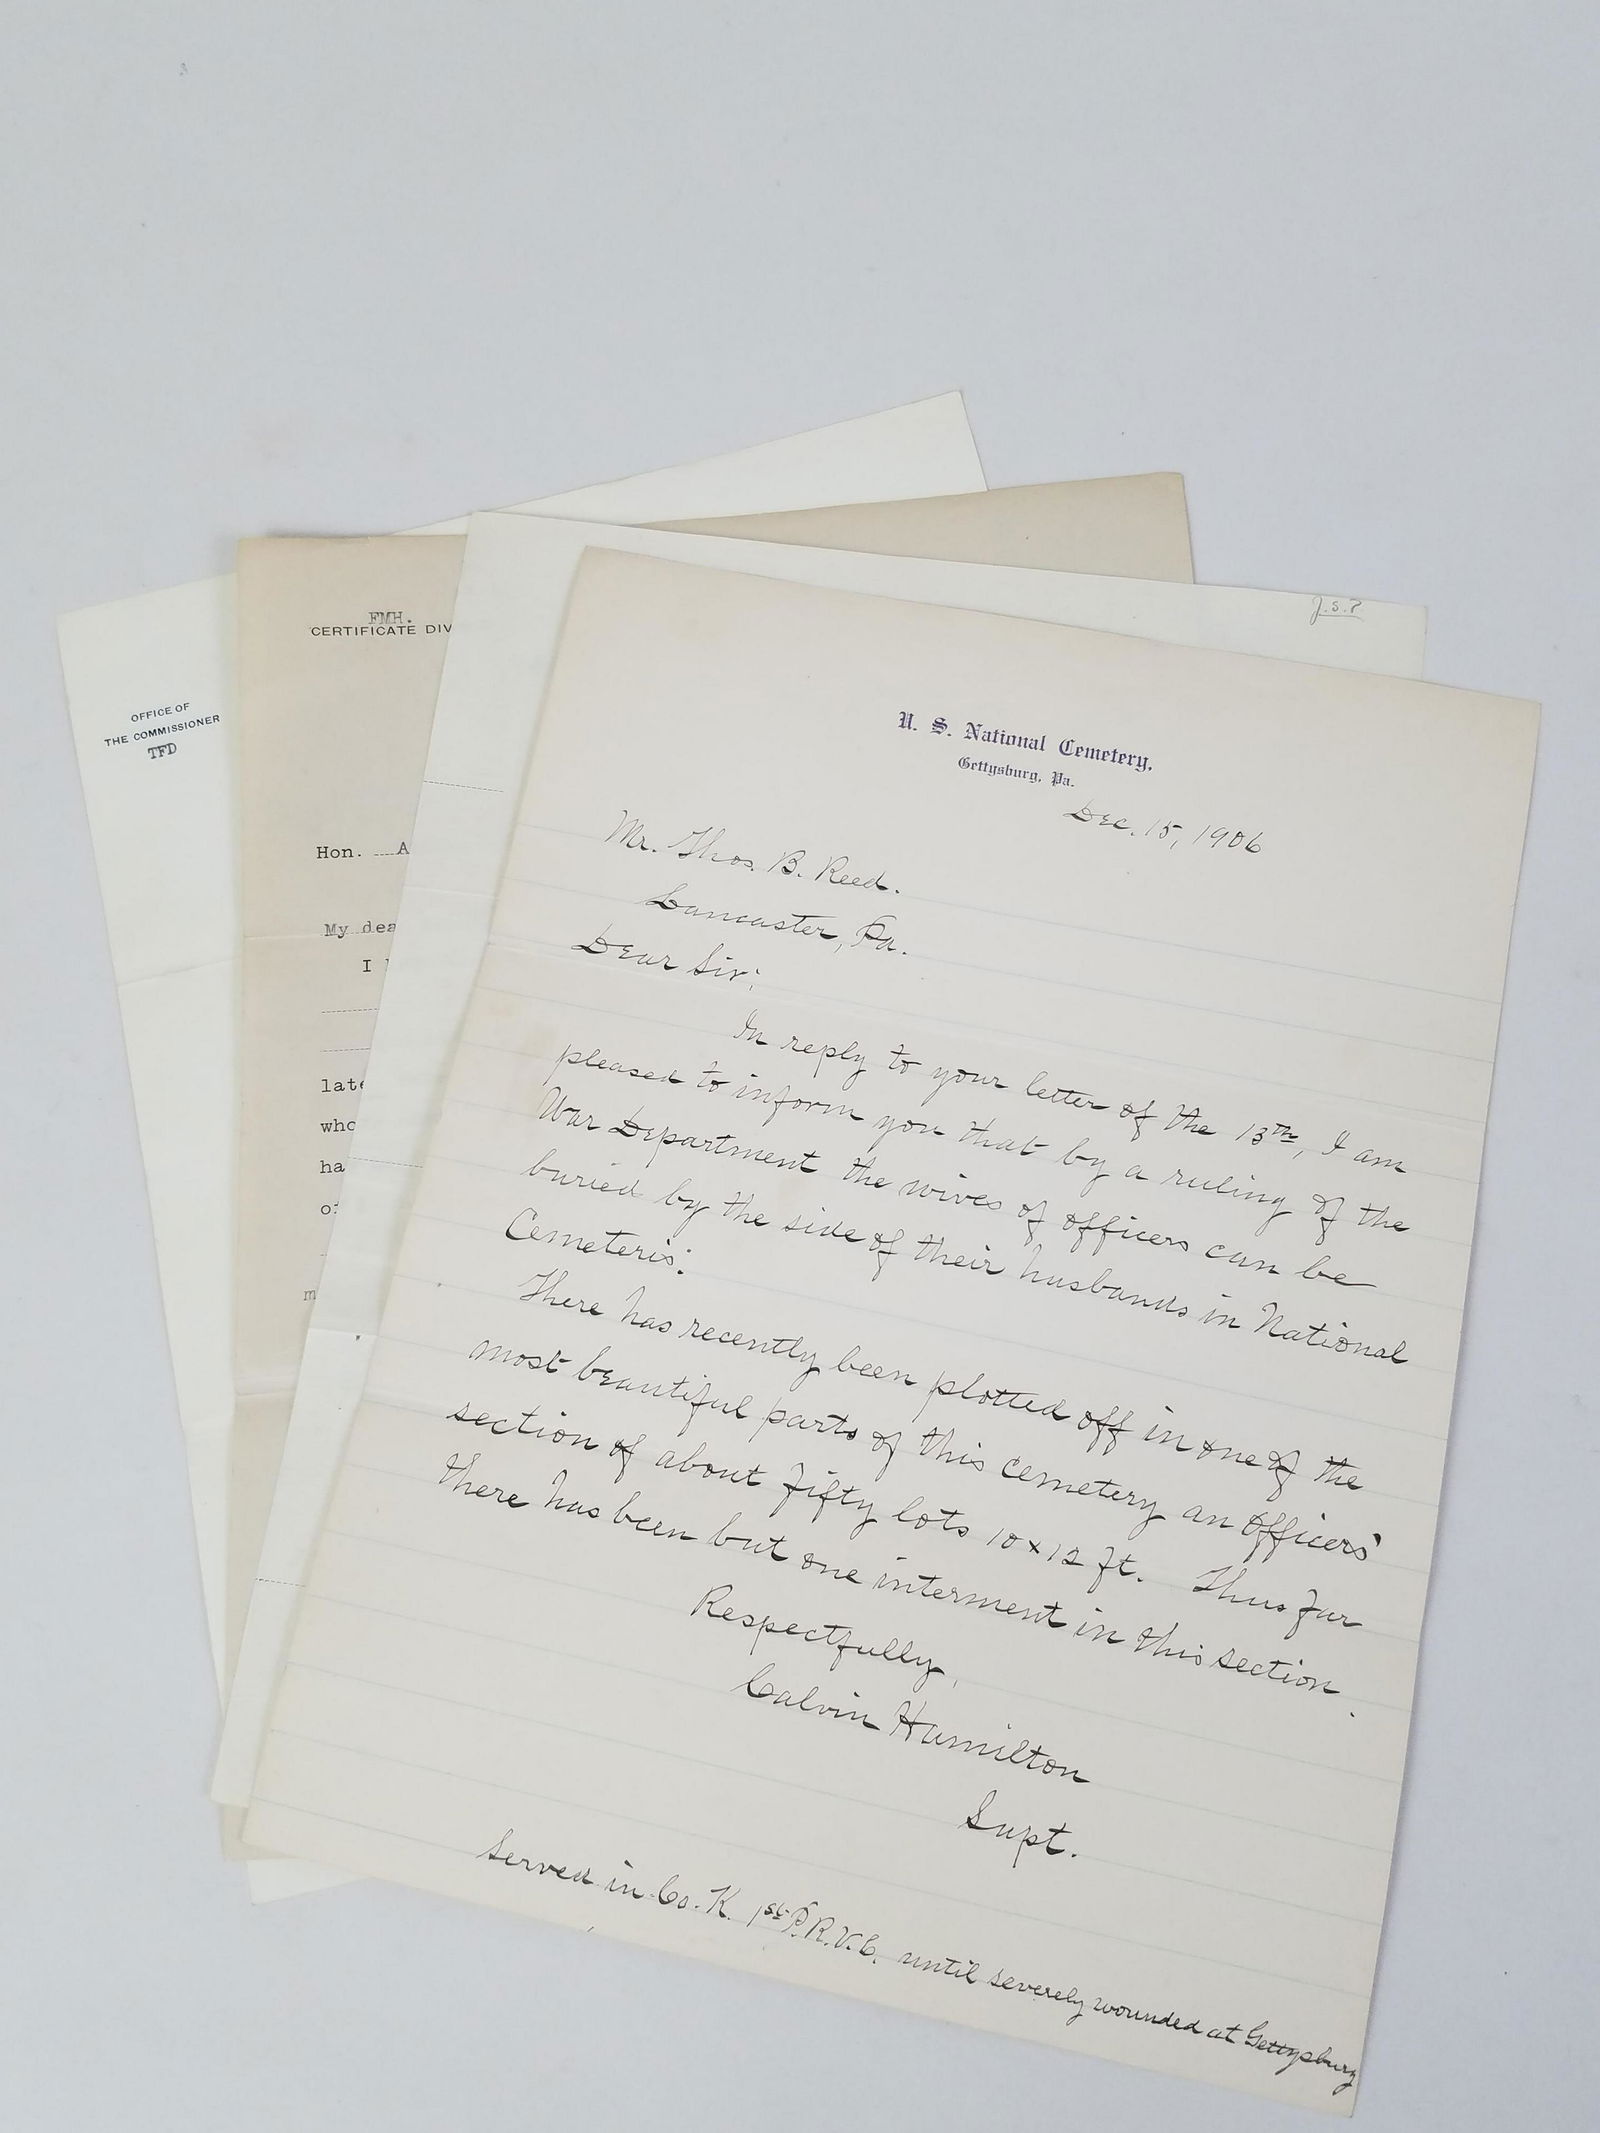 OFFICE OF
THE COMMISSIONER
TFD
FMH.
CERTIFICATE DIV
Hon. A
My dea
I
late
who
ha
of
m
J.S.P
U. S. National Cemetery,
Gettysburg, Pa.
Dec. 15, 1906
Mr. Thos. B. Reed.
Lancaster, Pa.
Dear Sir;
In reply to your letter of the 13th, I am
pleased to inform you that by a ruling of the
War Department the wives of officers can be
buried by the side of their husbands in National
Cemeteris:
There has recently been plotted off in one of the
most beautiful parts of this cemetery an Officers'
section of about fifty lots 10 x 12 ft. Thus far
there has been but one interment in this section.
Respectfully,
Calvin Hamilton
Supt.
Served in Co. K. 1st P.R.V.C. until severely wounded at Gettysburg